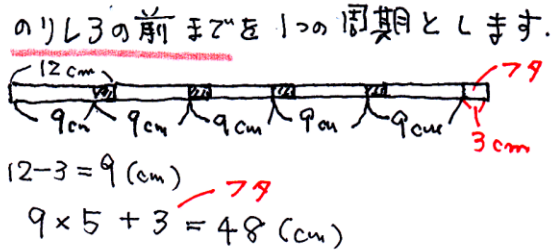 のりしろの前までを1つの周期とします.
12cm
フタ
9cm 9cm 9cm 9cm 9cm
3cm
12-3=9(cm)
フタ
9×5+3=48(cm)